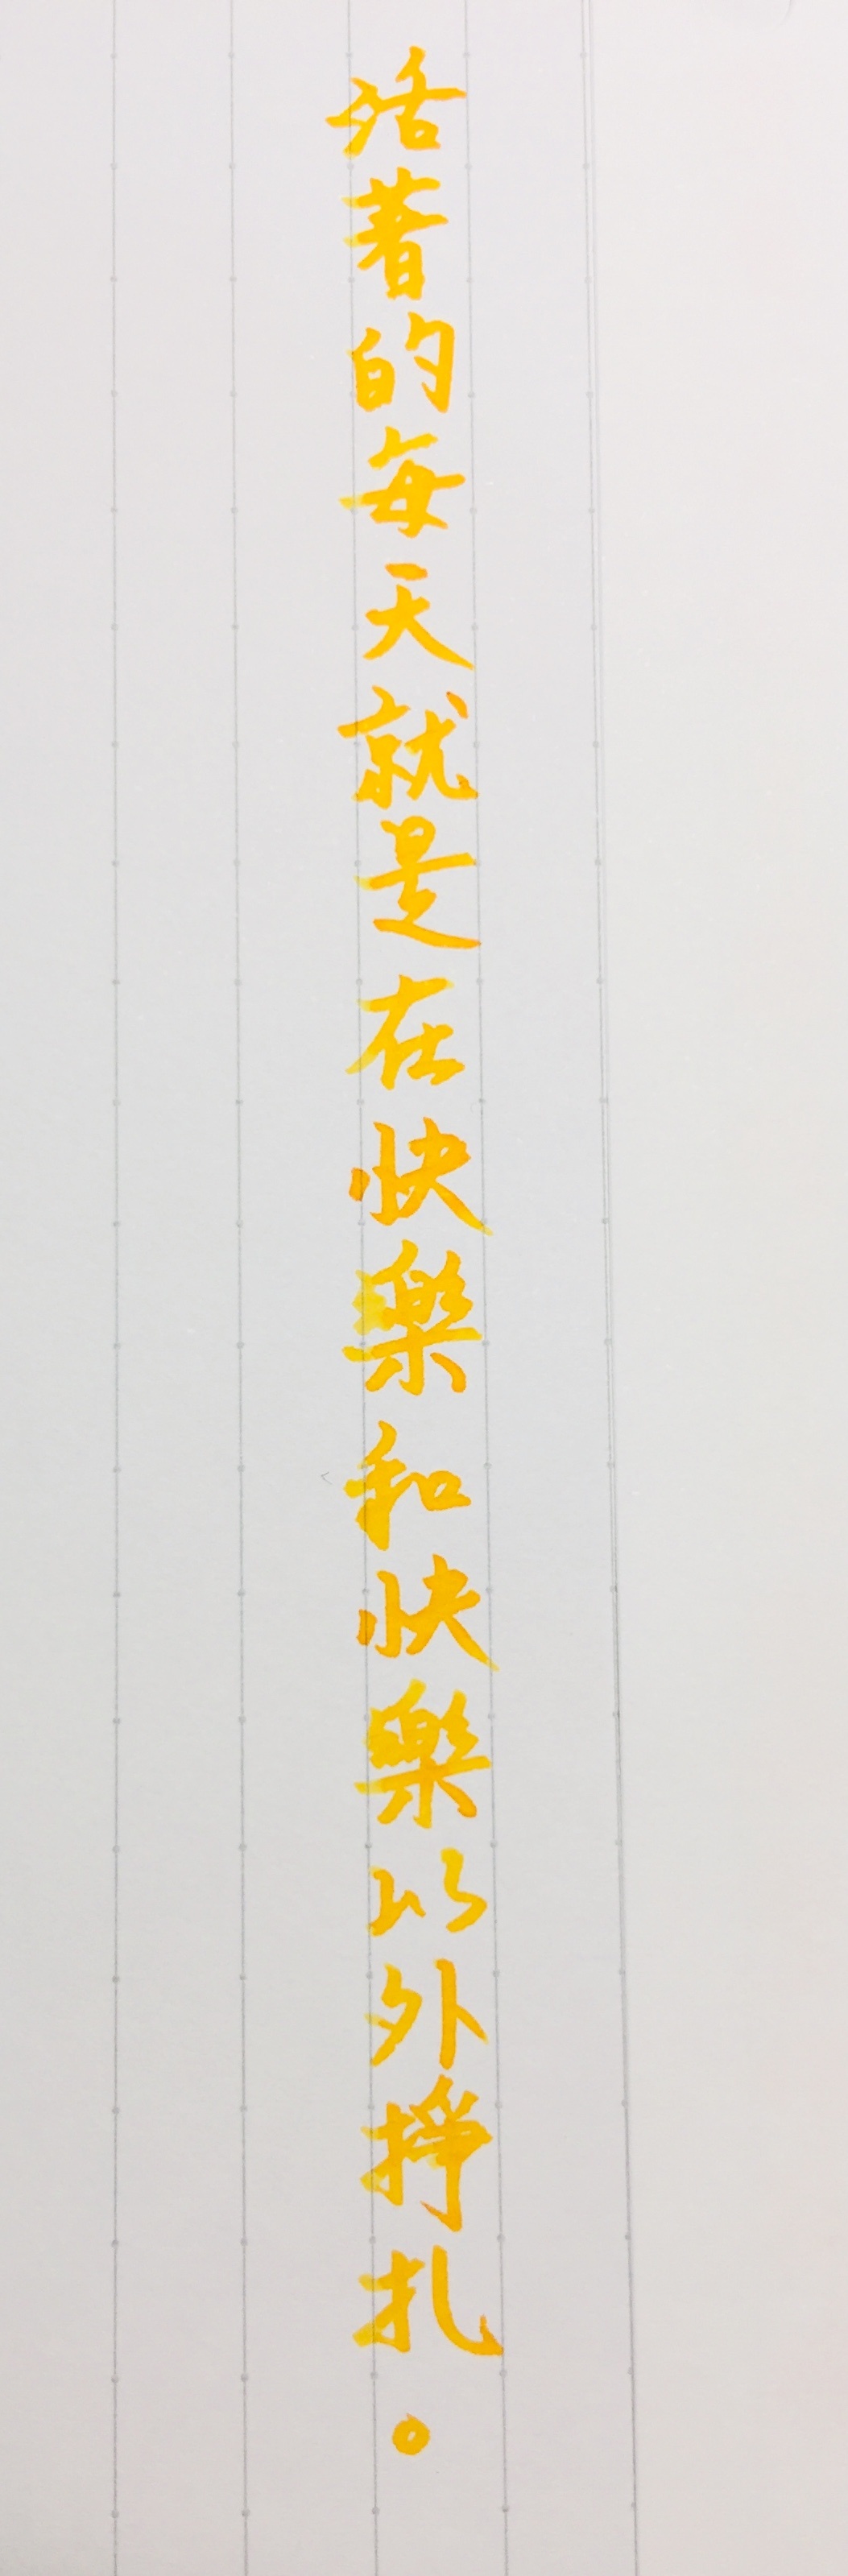 活著的每天就是在快樂和快樂以外掙扎。